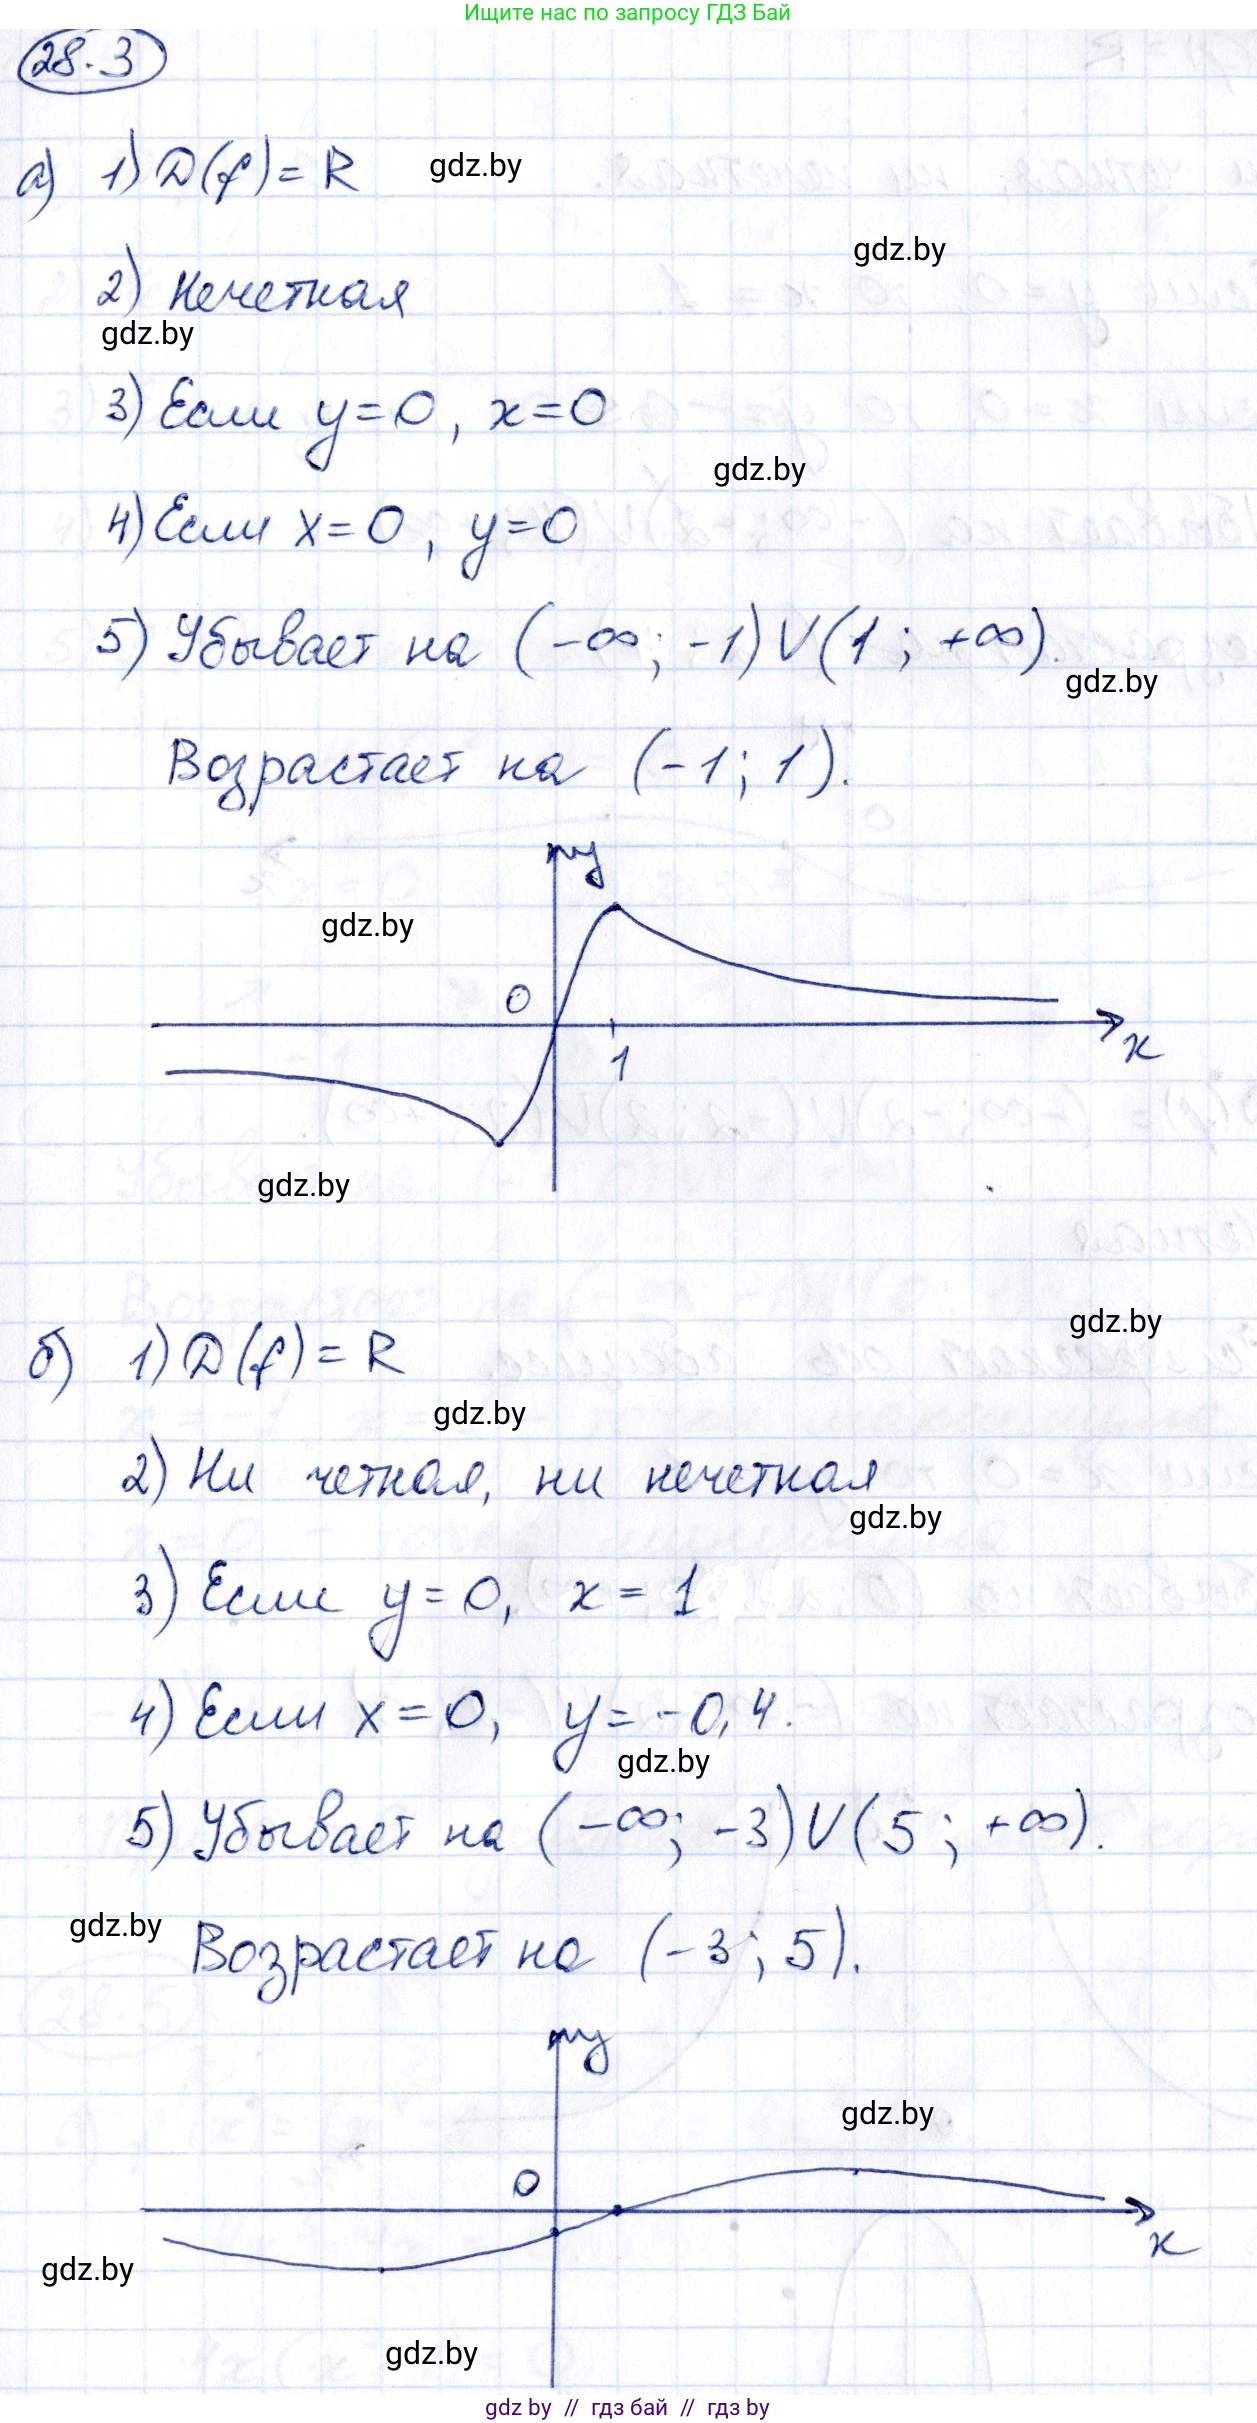 Ищите нас по запросу ГДЗ Бай
28.3
а) 1) D(f) = R
gdz.by
gdz.by
2) Нечетная
gdz.by
3) Если y=0, x=0
gdz.by
4) Если x=0, y=0
5) Убывает на (-∞; -1) V (1; +∞).
gdz.by
Возрастает на (-1; 1).
y
gdz.by
0
1
x
gdz.by
gdz.by
б) 1) D(f) = R
gdz.by
2) Ни четная, ни нечетная
gdz.by
3) Если y=0, x=1
4) Если x=0, y=-0,4.
gdz.by
5) Убывает на (-∞; -3) V (5; +∞).
gdz.by
Возрастает на (-3; 5).
y
gdz.by
0
x
gdz.by
gdz.by
gdz by // гдз бай // гдз by